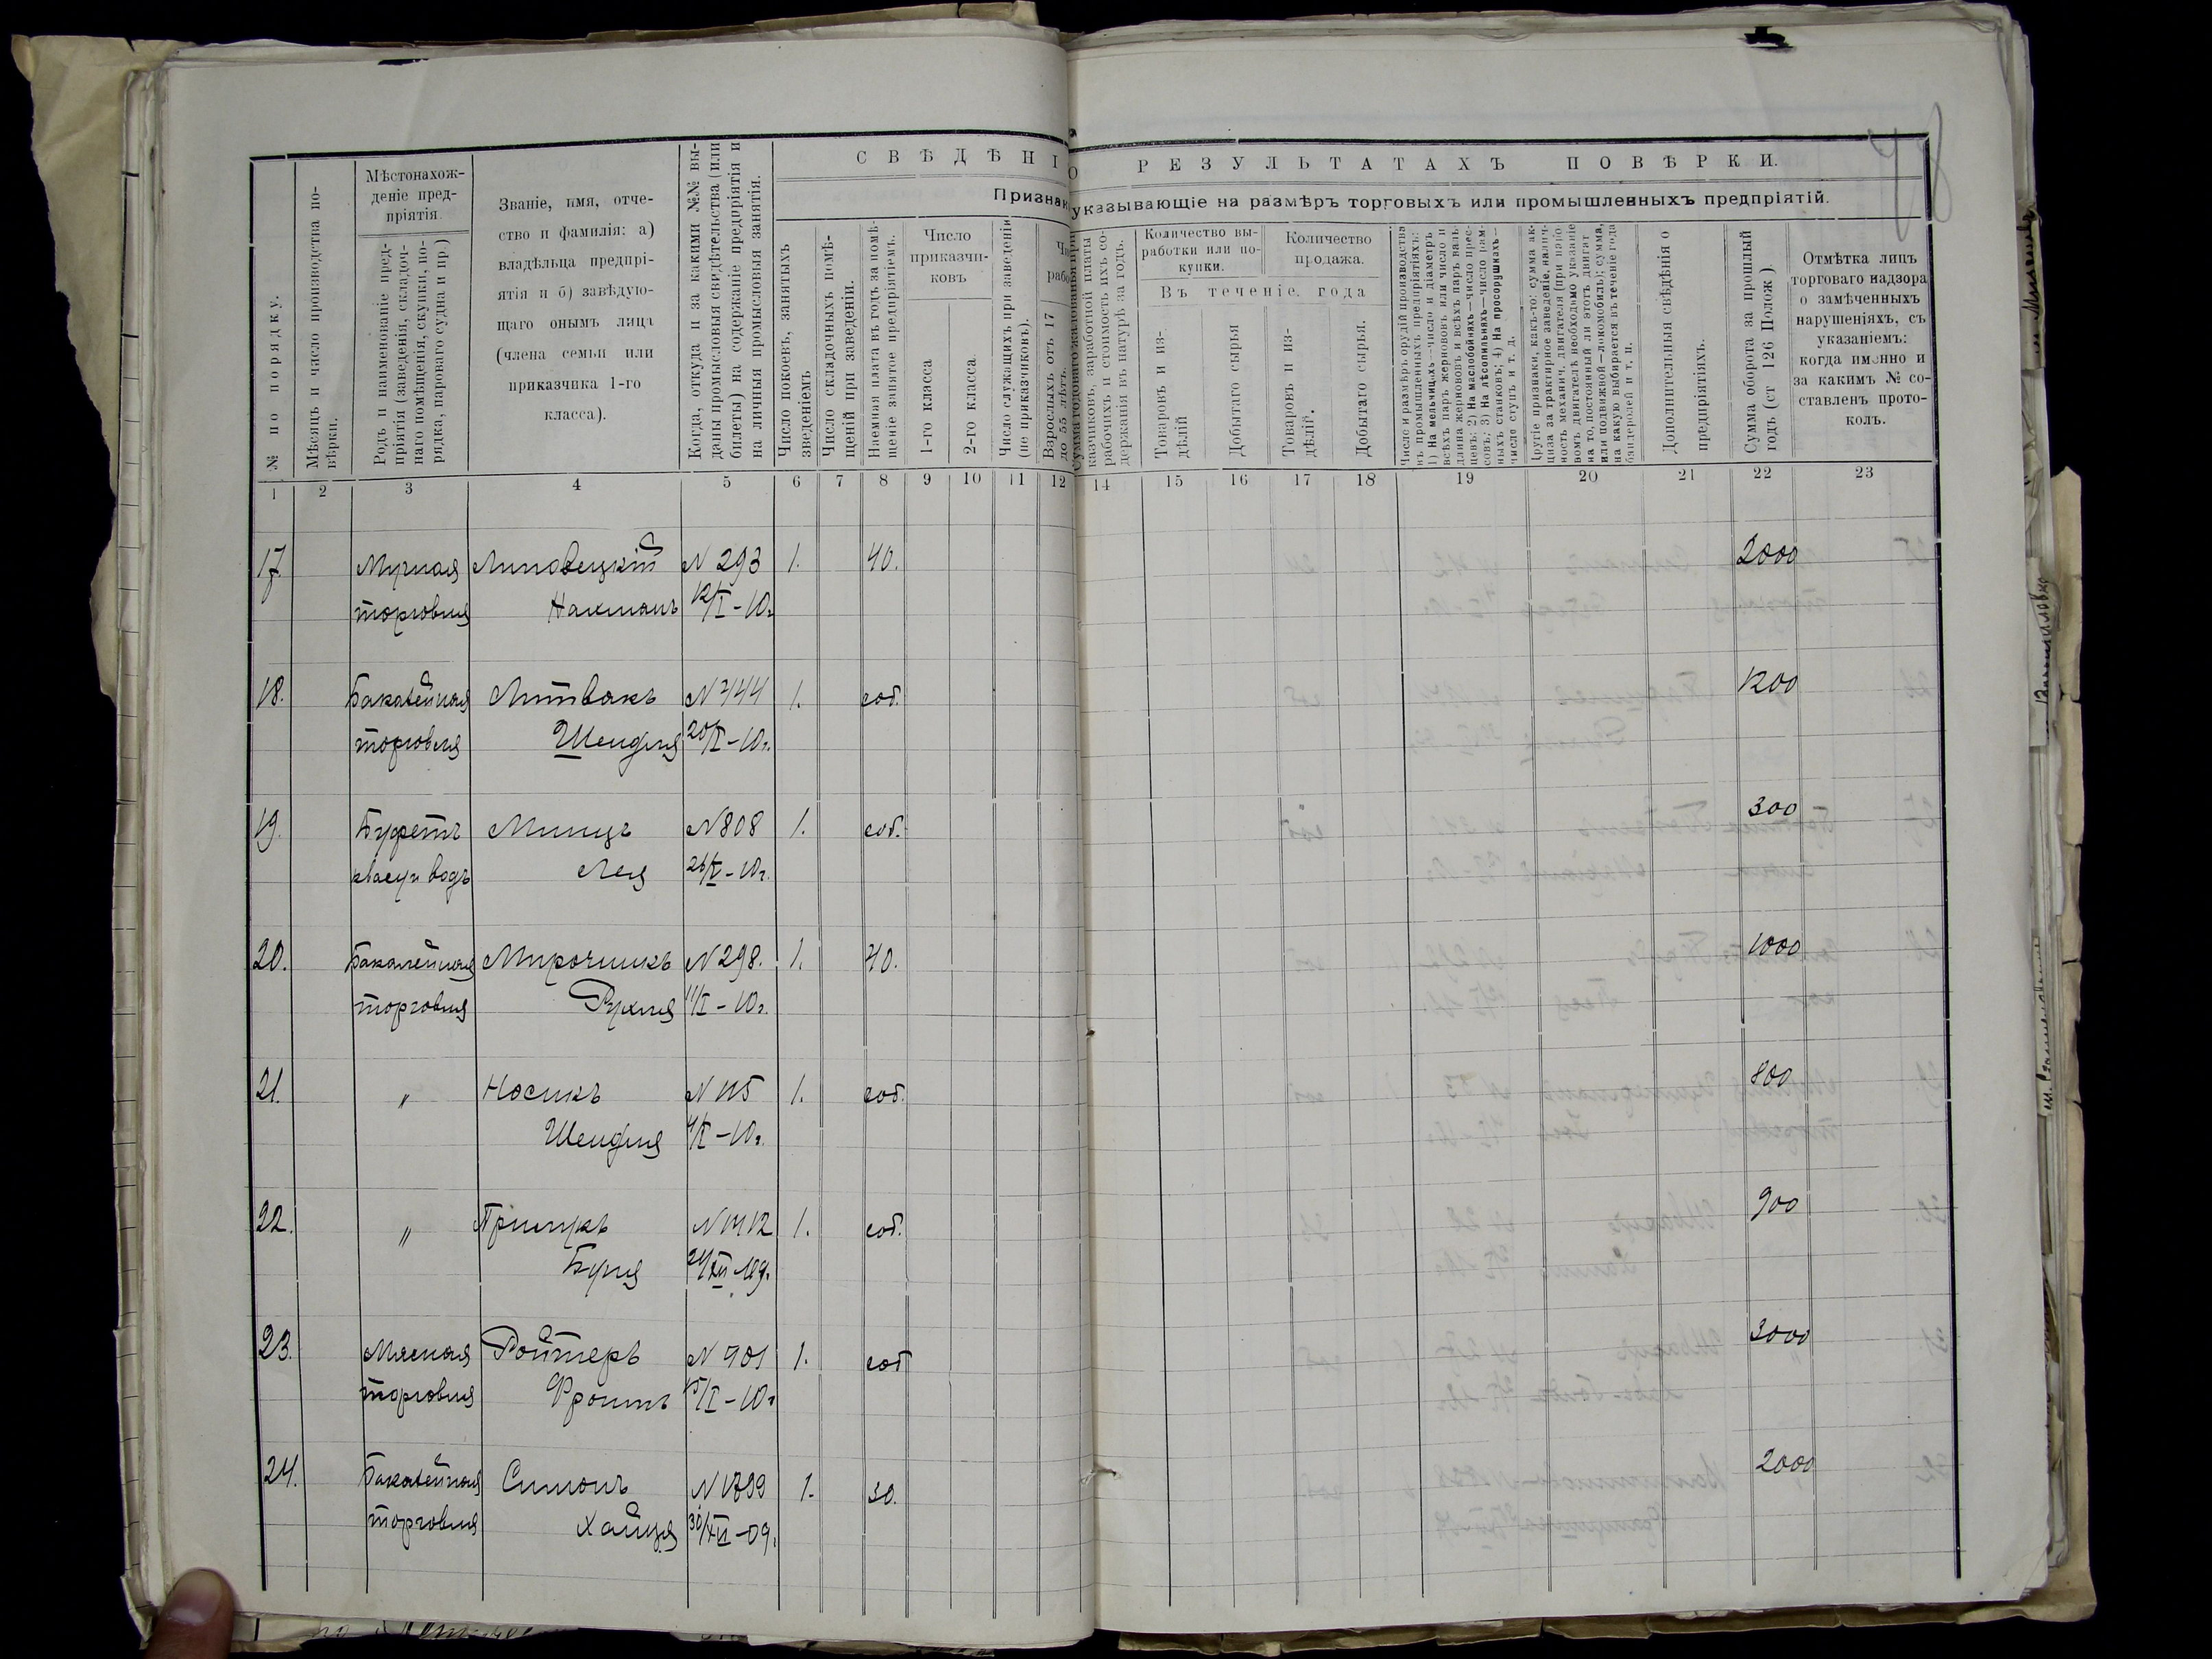 СВѢДѢНІ
О РЕЗУЛЬТАТАХЪ ПОВѢРКИ.
Признак
указывающіе на размѣръ торговыхъ или промышленныхъ предпріятій.
№ по порядку.
Мѣсяцъ и число производства по-
вѣрки.
Мѣстонахож-
деніе пред-
пріятія.
Родъ и наименованіе пред-
пріятія (заведенія, складоч-
наго помѣщенія, скупки, по-
ряда, пароваго судна и пр)
Званіе, имя, отче-
ство и фамилія: а)
владѣльца предпрі-
ятія и б) завѣдую-
щаго онымъ лица
(члена семьи или
приказчика 1-го
класса).
Когда, откуда и за какими №№ вы-
даны промысловыя свидѣтельства (или
билеты) на содержаніе предпріятія и
на личныя промысловыя занятія.
Число покоевъ, занятыхъ
зведеніемъ
Число складочныхъ помѣ-
щеній при заведеніи.
Наемная плата въ годъ за помѣ-
щеніе занятое предпріятіемъ.
Число
приказчи-
ковъ
1-го класса
2-го класса.
Число служащихъ при заведеніи
(не приказчиковъ).
Взрослыхъ отъ 17
до 55 лѣтъ.
казчиковъ, заработной платы
рабочихъ и стоимость ихъ со-
держанія въ натурѣ за годъ.
Количество вы-
работки или по-
купки.
Количество
продажа.
Въ теченіе года
Товаровъ и из-
дѣлій
Добытаго сырья
Товаровъ и из-
дѣлій.
Добытаго сырья.
Число и размѣръ орудій производства
въ промышленныхъ предпріятіяхъ:
1) На мельницахъ—число и діаметръ
всѣхъ паръ жернововъ или число и
длина жернововъ и всѣхъ паръ валь-
цевъ; 2) На маслобойняхъ—число прес-
совъ; 3) На лѣсопильняхъ—число рам-
ныхъ станковъ; 4) На просорушкахъ—
число ступъ и т. д.
Другіе признаки, какъ-то: сумма ак-
циза за трактирное заведеніе, налич-
ность механич. двигателя (при паро-
вомъ двигателѣ необходимо указаніе
на то, постоянный ли этотъ двигат
или подвижной—локомобиль); сумма,
на какую выбирается въ теченіе года
бандеролей и т. п.
Дополнительныя свѣдѣнія о
предпріятіяхъ.
Сумма оборота за прошлый
годъ (ст 126 Полож).
Отмѣтка лицъ
торговаго надзора
о замѣченныхъ
нарушеніяхъ, съ
указаніемъ:
когда именно и
за какимъ № со-
ставленъ прото-
колъ.
1 2 3 4 5 6 7 8 9 10 11 12 14 15 16 17 18 19 20 21 22 23
17. Мучная Липовецкій N 293 1. 40. 2000
торговля Нахманъ 12/I-10г
18. Бакалейная Литвакъ N 744 1. соб. 1200
торговля Шендля 20/I-10г.
19. Буфетъ Минцъ N 808 1. соб. 300
квасу и водъ Лея 26/V-10г.
20. Бакалейная Мирочникъ N 298. 1. 40. 1000
торговля Рухля 11/I-10г.
21. " Носикъ N 115 1. соб. 800
Шендля 4/I-10г.
22. " N 1412 1. соб. 900
Буня 24/XII-09.
23. Мясная Ройтеръ N 901 1. соб 3000
торговля Фроимъ 15/I-10г
24. Бакалейная Симонъ N 1799 1. 30. 2000
торговля Хайця 30/XII-09.